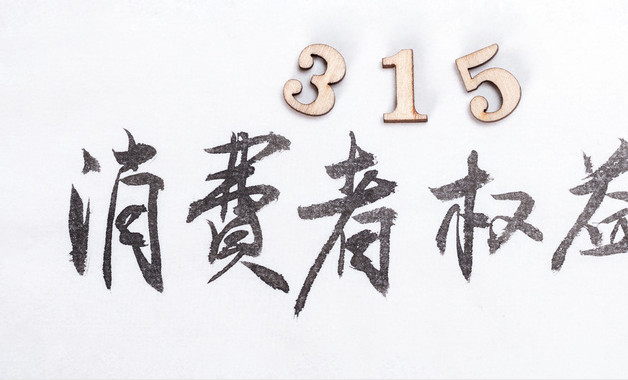 315
消費者权益